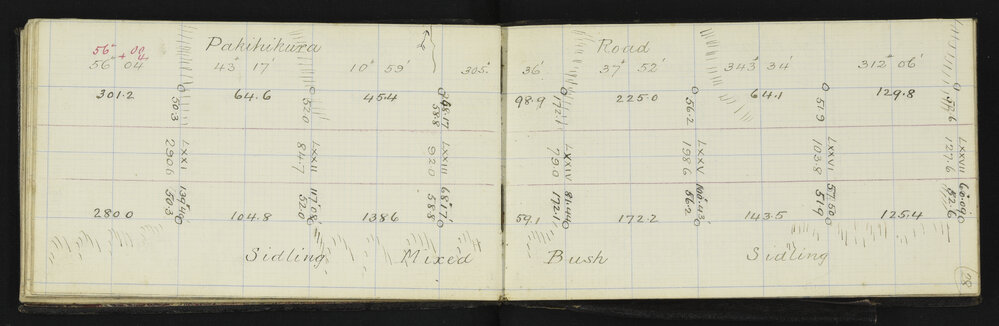 Pakihikura Road
56° 00
+ 4
56° 04' 43° 17' 10° 59' 305° 36' 37° 52' 343° 34' 312° 06'
301.2 64.6 45.4 98.9 225.0 64.1 129.8
50.3 52.0 58.8 172.1 56.2 51.9 52.6
LXXI LXXII LXXIII LXXIV LXXV LXXVI LXXVII
290.6 84.7 92.0 79.0 198.6 103.8 127.6
50.3 52.0 58.8 172.1 56.2 51.9 52.6
280.0 104.8 138.6 59.1 172.2 143.5 125.4
Sidling Mixed Bush Sidling
28